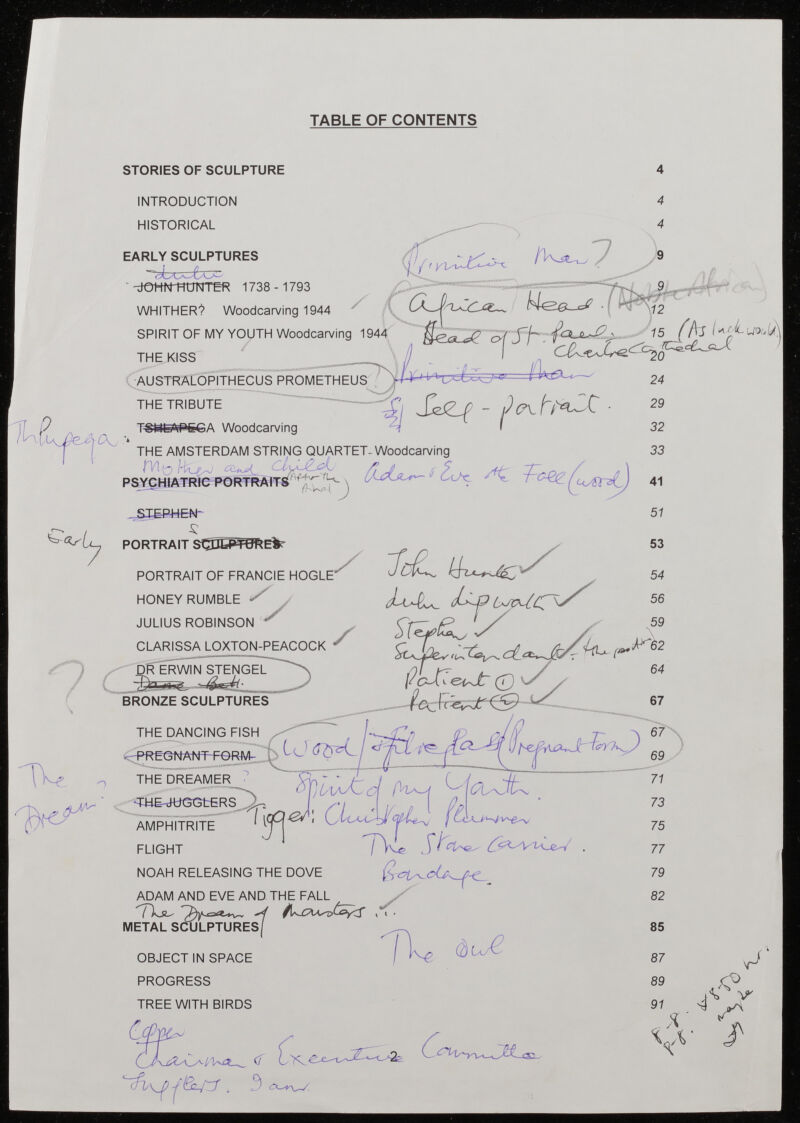 TABLE OF CONTENTS
STORIES OF SCULPTURE 4
INTRODUCTION 4
HISTORICAL 4
EARLY SCULPTURES Primitive Man? 9
JOHN HUNTER 1738 - 1793 9
WHITHER? Woodcarving 1944 African Head. 12
SPIRIT OF MY YOUTH Woodcarving 1944 Head of St. Paul. 15
THE KISS Chartres Cathedral 20
AUSTRALOPITHECUS PROMETHEUS Primitive Man 24
THE TRIBUTE Self-portrait. 29
TSHLAPEGA Woodcarving 32
THE AMSTERDAM STRING QUARTET- Woodcarving 33
Mother and Child
PSYCHIATRIC PORTRAITS Adam & Eve the Fall (wood) 41
STEPHEN 51
Early PORTRAIT SCULPTURES 53
PORTRAIT OF FRANCIE HOGLE John Hunter 54
HONEY RUMBLE 56
JULIUS ROBINSON Stephen 59
CLARISSA LOXTON-PEACOCK Superintendant - the 62
? DR ERWIN STENGEL Patient 1 64
Patient 2
BRONZE SCULPTURES 67
THE DANCING FISH 67
PREGNANT FORM Wood / Fibreglass (Pregnant Form) 69
The Dream? THE DREAMER ? Spirit of my Youth. 71
THE JUGGLERS 73
AMPHITRITE Tigger: Christopher Plummer 75
FLIGHT The Stone Carrier. 77
NOAH RELEASING THE DOVE Bondage. 79
ADAM AND EVE AND THE FALL 82
The Dream of Monsters ...
METAL SCULPTURES 85
OBJECT IN SPACE The Owl 87
PROGRESS 89
TREE WITH BIRDS 91
Copper
Chairman & Executive Committee
2
Jugglers.